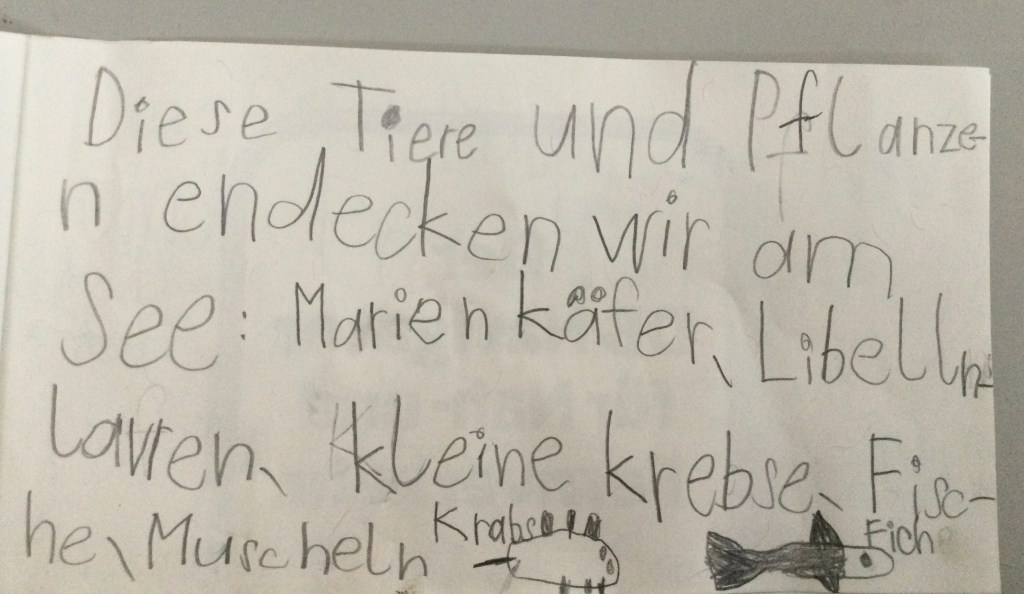 Diese Tiere und Pflanze-
n endecken wir am
See: Marienkäfer, Libelln-
lavren, kleine krebse, Fisc-
he, Muscheln Krabs Fich